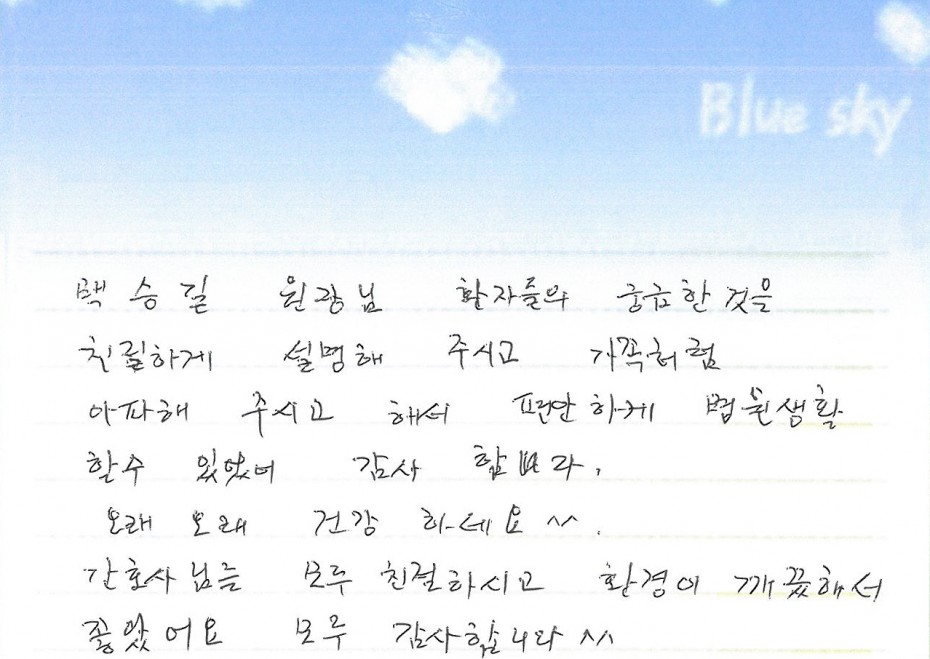 Blue sky
백승길 원장님 환자들의 궁금한 것을
친절하게 설명해 주시고 가족처럼
아파해 주시고 해서 편안하게 병원생활
할수 있었어 감사 합니다.
오래 오래 건강 하세요 ^^.
간호사님들 모두 친절하시고 환경이 깨끗해서
좋았어요 모두 감사합니다 ^^